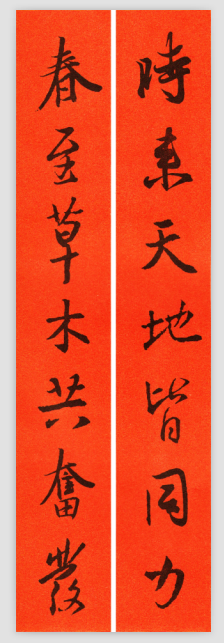 時來天地皆同力
春至草木共奮發